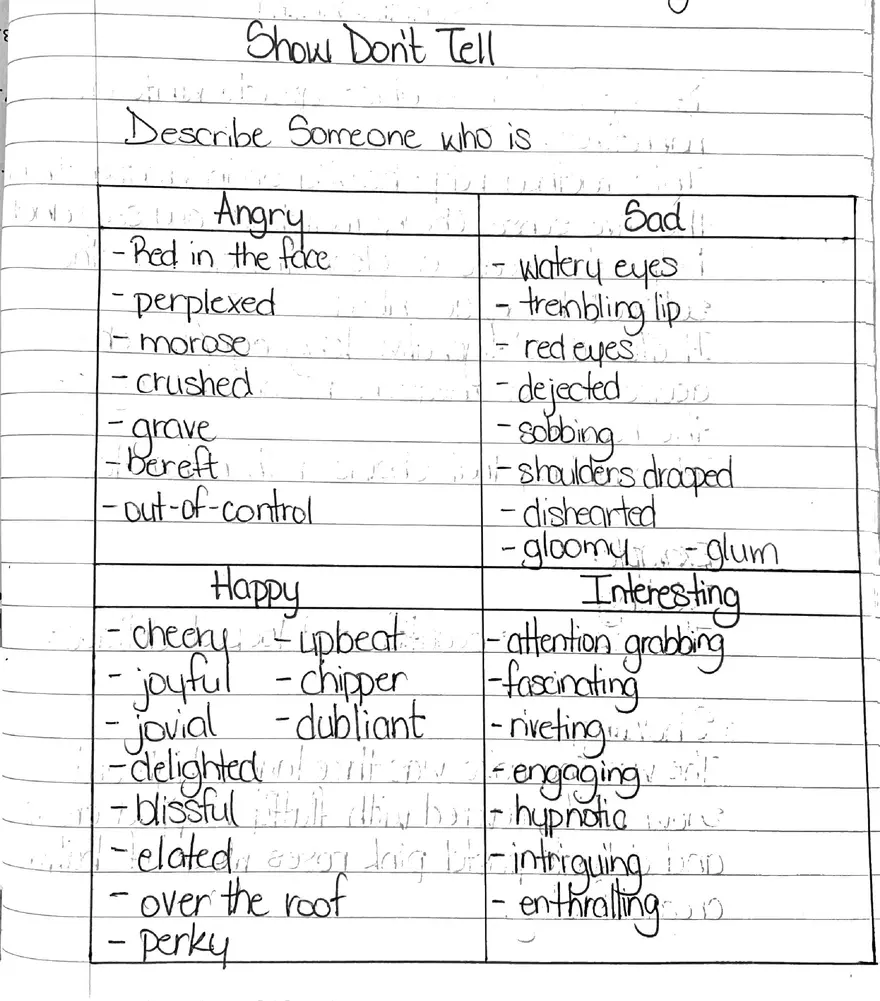 Show Don't Tell
Describe Someone who is
Angry
- Red in the face
- perplexed
- morose
- crushed
- grave
- bereft
- out-of-control
Sad
- watery eyes
- trembling lip
- red eyes
- dejected
- sobbing
- shoulders drooped
- dishearted
- gloomy - glum
Happy
- cheery - upbeat
- joyful - chipper
- jovial - dubliant
- delighted
- blissful
- elated
- over the roof
- perky
Interesting
- attention grabbing
- fascinating
- riveting
- engaging
- hypnotic
- intriguing
- enthralling